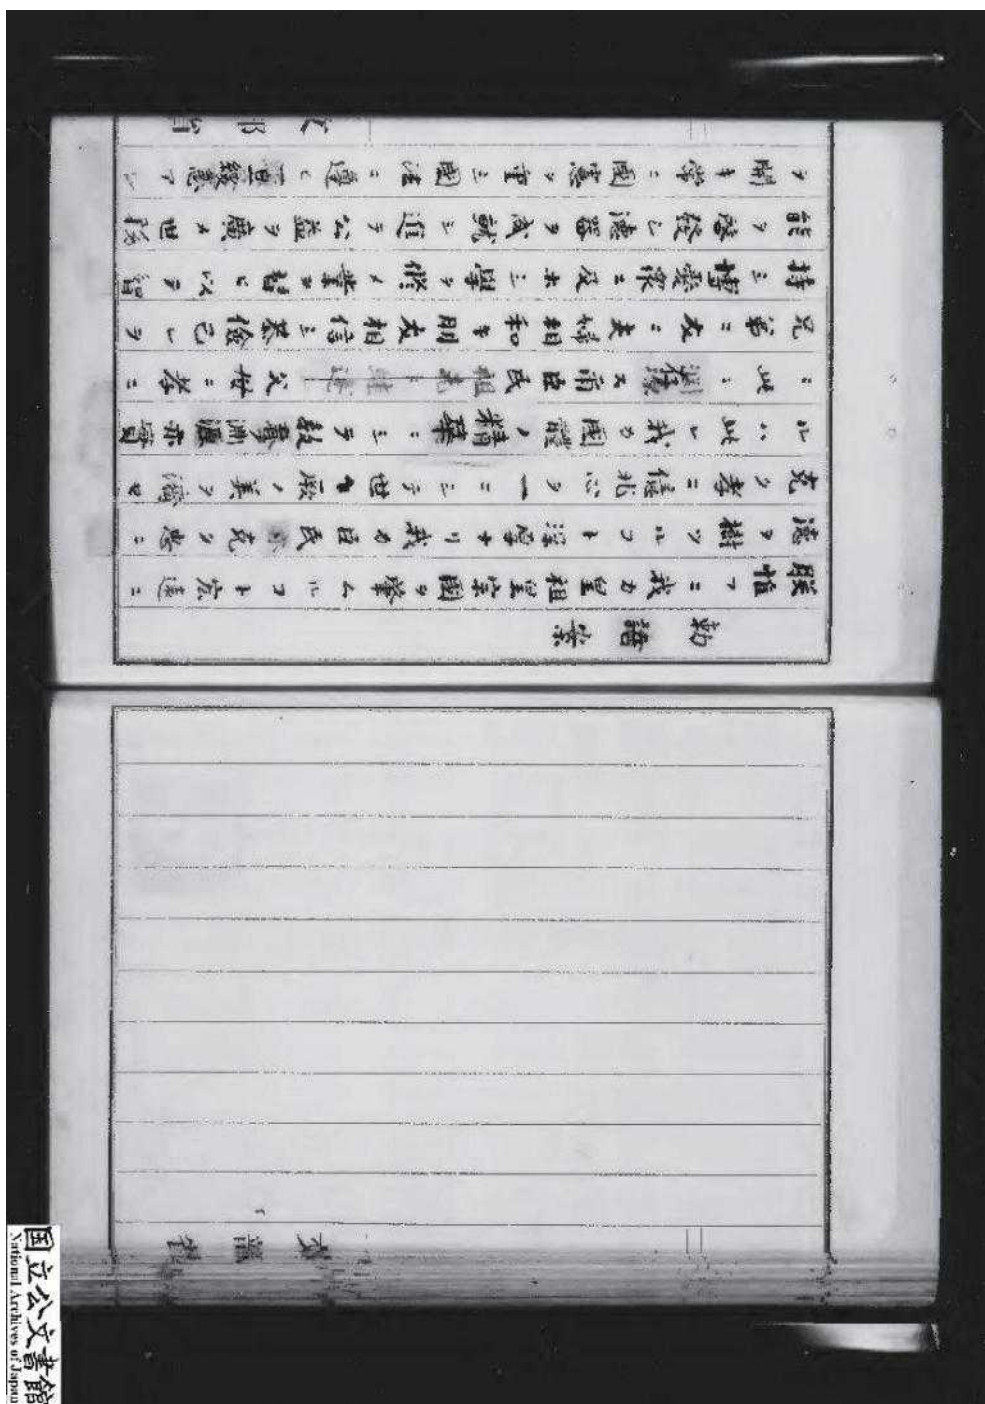 勅語案
朕惟フニ我カ皇祖皇宗國ヲ肇ムルコト宏遠ニ
德ヲ樹ツルコト深厚ナリ我カ臣民克ク忠ニ
克ク孝ニ億兆心ヲ一ニシテ世々厥ノ美ヲ濟セ
ルハ此レ我カ國體ノ精華ニシテ教養淵源亦實
ニ此ニ爾臣民父母ニ孝ニ
兄弟ニ友ニ夫婦相和キ朋友相信シ恭儉己レヲ
持シ博愛衆ニ及ホシ學ヲ修メ業ヲ習ヒ以テ智
能ヲ啓發シ德器ヲ成就シ進テ公益ヲ廣メ世務
ヲ開キ常ニ國憲ヲ重シ國法ニ遵ヒ一旦緩急アレ
文部省
文部省
国立公文書館
National Archives of Japan